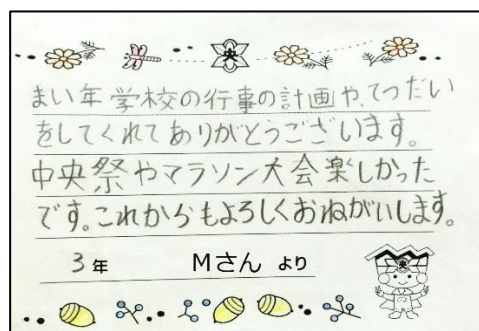 央
まい年学校の行事の計画や、てつだい
をしてくれてありがとうございます。
中央祭やマラソン大会楽しかった
です。これからもよろしくおねがいします。
3年 Mさん より